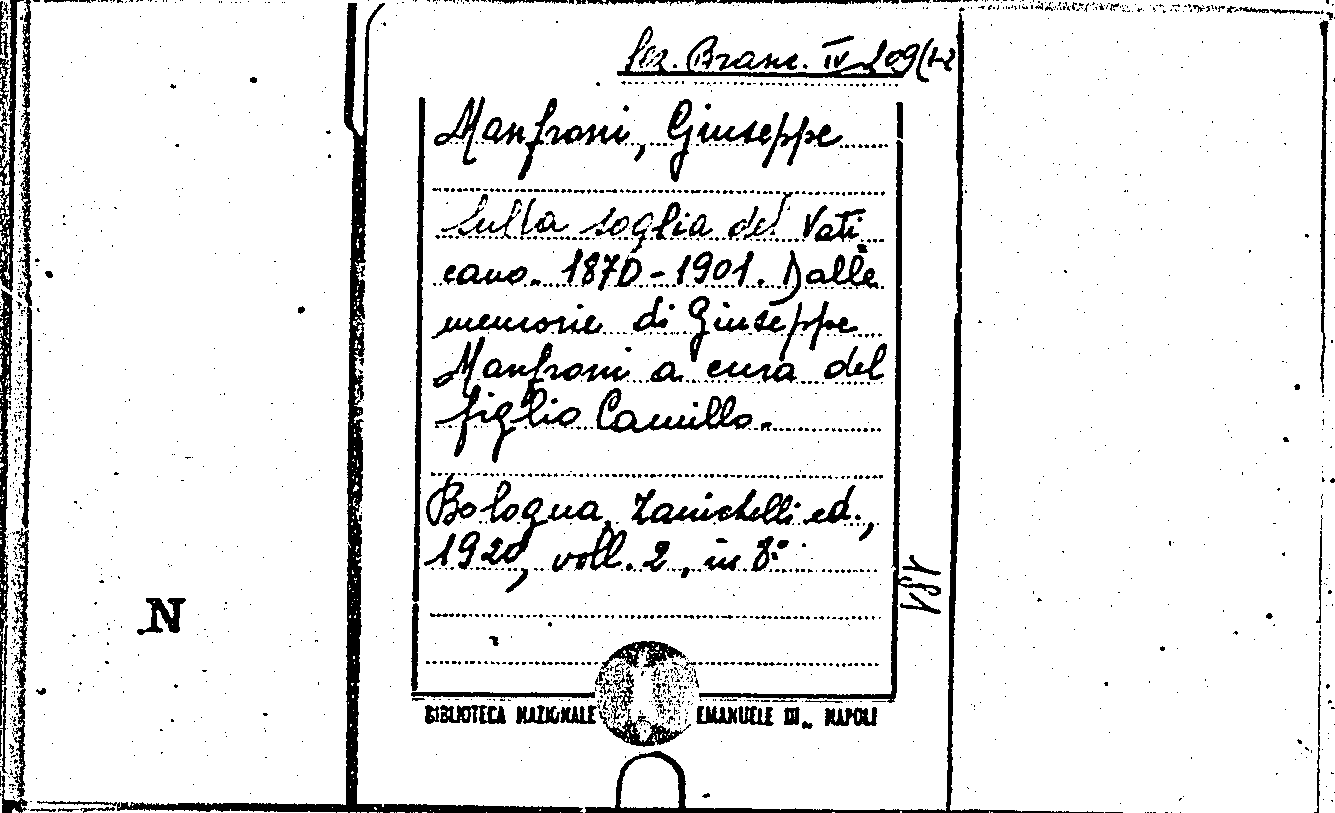 Sez. Branc. IV 209(1-2
Manfroni, Giuseppe
Sulla soglia del Vati
cano. 1870-1901. Dalle
memorie di Giuseppe
Manfroni a cura del
figlio Camillo.
Bologna, Zanichelli ed.,
1920, voll. 2, in 8º
181
N
BIBLIOTECA NAZIONALE EMANUELE III_ NAPOLI